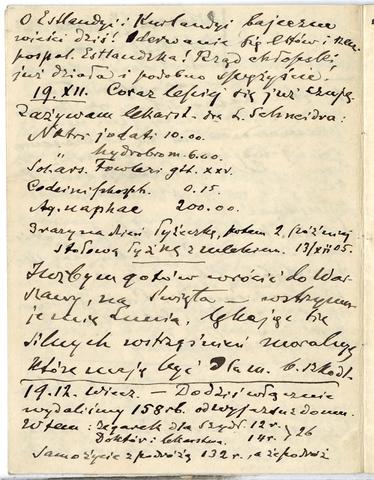 O Estlandyi i Kurlandyi bajeczne
wieści dziś! Oderwanie się Ettów i
pospol. Estlandzka! Rząd chłopski
już działa i podobno sprężyście!
19.XII. Coraz lepiej się już czuję.
Zażywam lekarst. dra L. Schneidra:
Natri jodati 10.00.
" hydrobrom. 6.00.
Sol. ars. Fowleri gtt. XXV.
Codeini phosph. 0.15.
Aq. naphae 200.00.
3 razy na dzień łyżeczkę, potem 2, później
stołową łyżkę z mlekiem. 13/XII 05.
Jużbym gotów wrócić do War-
szawy, na święta — wstrzymu-
je mię Lunia, lękając się
silnych wstrząśnień moralnych
które mają być dla m. b. szkodl.
19.12. wiecz. — Do dziś włącznie
wydaliśmy 158 rb. od wyjazdu z domu.
W tem: zegarek dla 12 r.
Doktór i lekarstwa. 14 r. } 26
Samo życie z podróżą 132 r., a że podróż